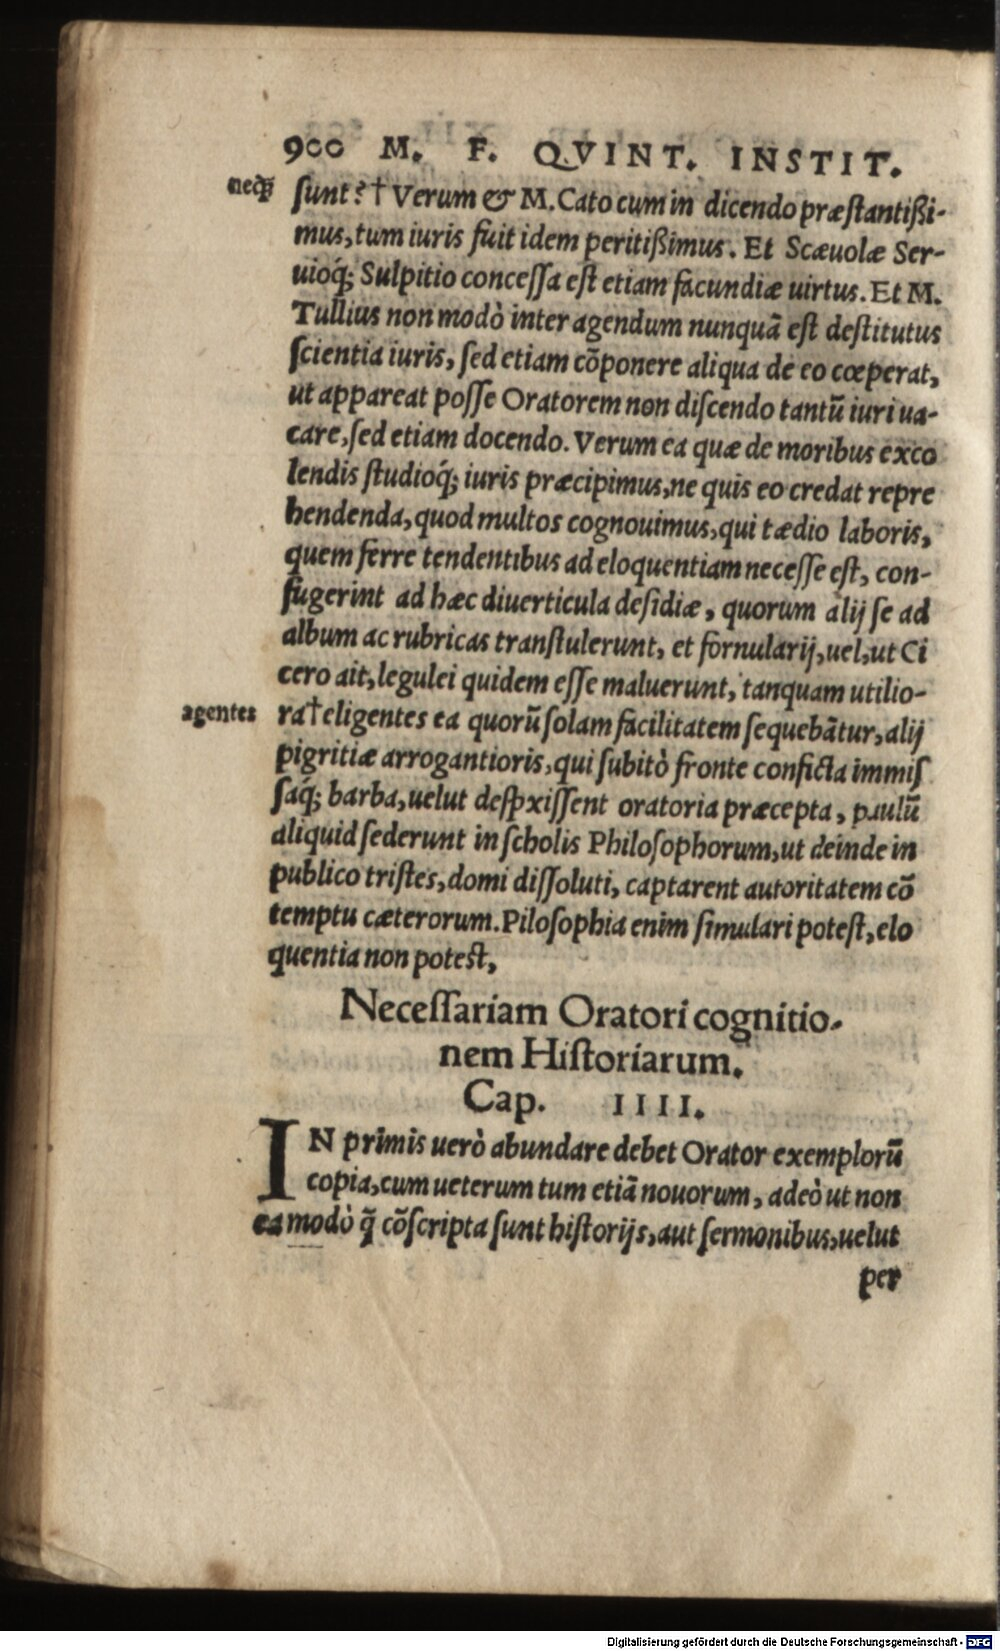 900 M. F. QVINT. INSTIT.
neq́ꝫ
ſunt?† Verum & M. Cato cum in dicendo præſtantißi-
mus, tum iuris fuit idem peritißimus. Et Scæuolæ Ser-
uioq́; Sulpitio conceſſa eſt etiam facundiæ uirtus. Et M.
Tullius non modò inter agendum nunquã eſt deſtitutus
ſcientia iuris, ſed etiam cõponere aliqua de eo cœperat,
ut appareat poſſe Oratorem non diſcendo tantũ iuri ua-
care, ſed etiam docendo. Verum ea quæ de moribus exco
lendis ſtudioq́; iuris præcipimus, ne quis eo credat repre
hendenda, quod multos cognouimus, qui tædio laboris,
quem ferre tendentibus ad eloquentiam neceſſe eſt, con-
fugerint ad hæc diuerticula deſidiæ, quorum alij ſe ad
album ac rubricas tranſtulerunt, et formularij, uel, ut Ci
cero ait, legulei quidem eſſe maluerunt, tanquam utilio-
agentes
ra†eligentes ea quorũ ſolam facilitatem ſequebãtur, alij
pigritiæ arrogantioris, qui ſubitò fronte conficta immiſ
ſaq́; barba, uelut deſpxiſſent oratoria præcepta, paulũ
aliquid ſederunt in ſcholis Philoſophorum, ut deinde in
publico triſtes, domi diſſoluti, captarent autoritatem cõ
temptu cæterorum. Piloſophia enim ſimulari poteſt, elo
quentia non poteſt,
Neceſſariam Oratori cognitio-
nem Hiſtoriarum.
Cap. IIII.
IN primis uerò abundare debet Orator exemplorũ
copia, cum ueterum tum etiã nouorum, adeò ut non
ea modò q̃ cõſcripta ſunt hiſtorijs, aut ſermonibus, uelut
per
Digitalisierung gefördert durch die Deutsche Forschungsgemeinschaft - DFG